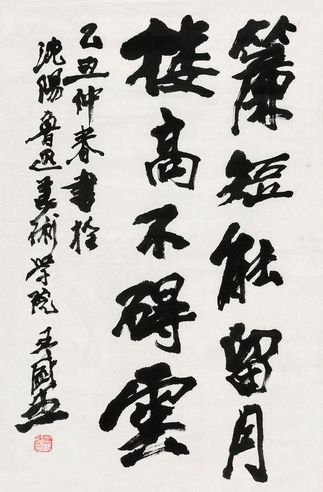 簾短能留月
樓高不礙雲
乙丑仲春書於
沈陽魯迅美術學院 王盛烈